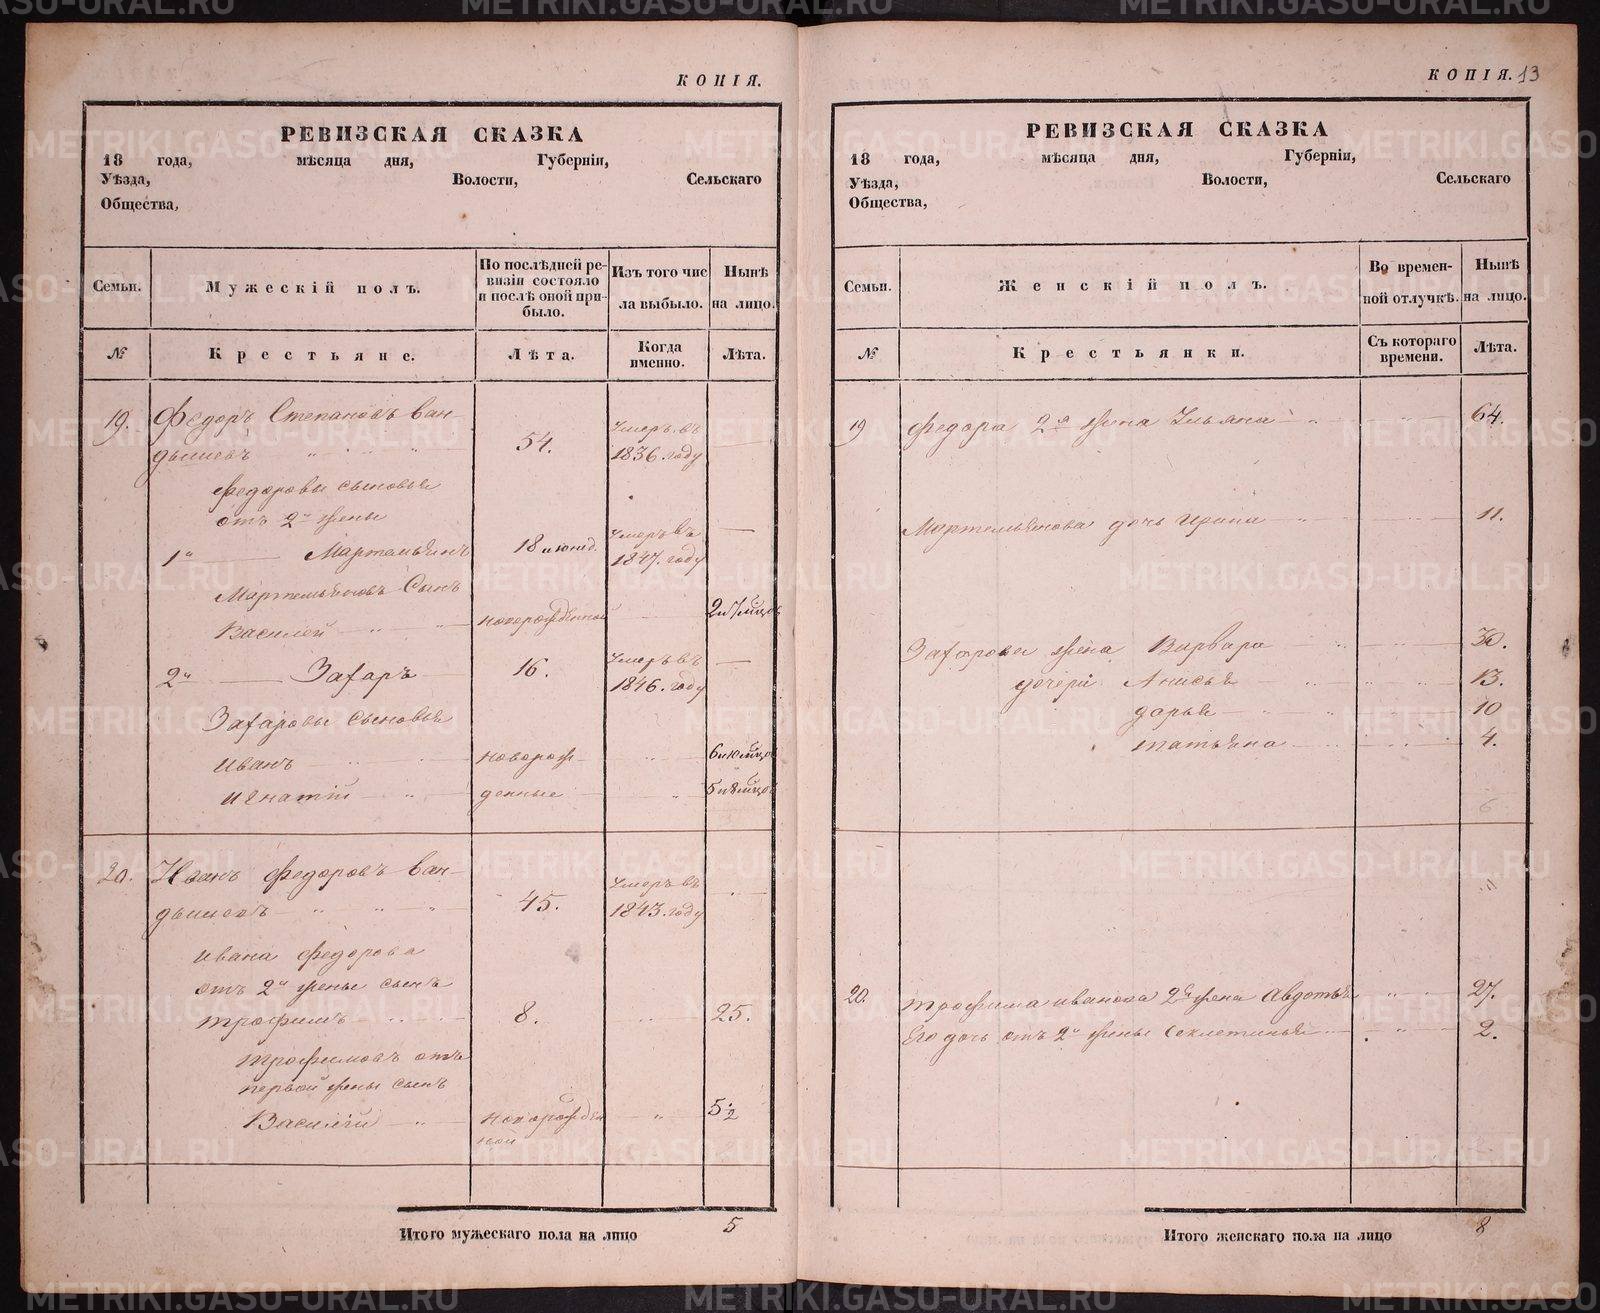 КОПІЯ.
РЕВИЗСКАЯ СКАЗКА
18 года, мѣсяца дня, Губерніи,
Уѣзда, Волости, Сельскаго
Общества,
Семьи. Мужескій полъ. По послѣдней ревизіи состояло и послѣ оной прибыло. Изъ того числа выбыло. Нынѣ на лицо.
№ Крестьяне. Лѣта. Когда именно. Лѣта.
19. Федоръ Степановъ Ван-
дышевъ 54. Умеръ въ 1836 году
Федоровы сыновья
отъ 2й жены
1й Мартемьянъ 18 Умеръ въ 1847 году
Мартемьяновъ Сынъ
Василей новорожденной 2 и 7 мѣцовъ
2й Захаръ 16. Умеръ въ 1846 году
Захаровы сыновья
Иванъ новорож- 6 и 10 мѣцовъ
Игнатій денные 5 и 8 мѣцовъ
20. Иванъ Федоровъ Ван-
дышевъ 45. Умеръ въ 1843 году
Ивана Федорова
отъ 2й жены сынъ
Трофимъ 8. 25.
Трофимовъ отъ
первой жены сынъ
Василій новорожден
ной 5½
Итого мужескаго пола на лицо 5
КОПІЯ. 13
РЕВИЗСКАЯ СКАЗКА
18 года, мѣсяца дня, Губерніи,
Уѣзда, Волости, Сельскаго
Общества,
Семьи. Женскій полъ. Во временной отлучкѣ. Нынѣ на лицо.
№ Крестьянки. Съ котораго времени. Лѣта.
19 Федора 2я жена Ульяна 64.
Мартемьянова дочь Ирина 11.
Захарова жена Варвара 30.
дочери Анисья 13.
Дарья 10
Татьяна 4.
6
20. Трофима Иванова 2я жена Авдотья 27.
Его дочь отъ 2й жены Секлетинья 2.
Итого женскаго пола на лицо 8
METRIKI.GASO-URAL.RU